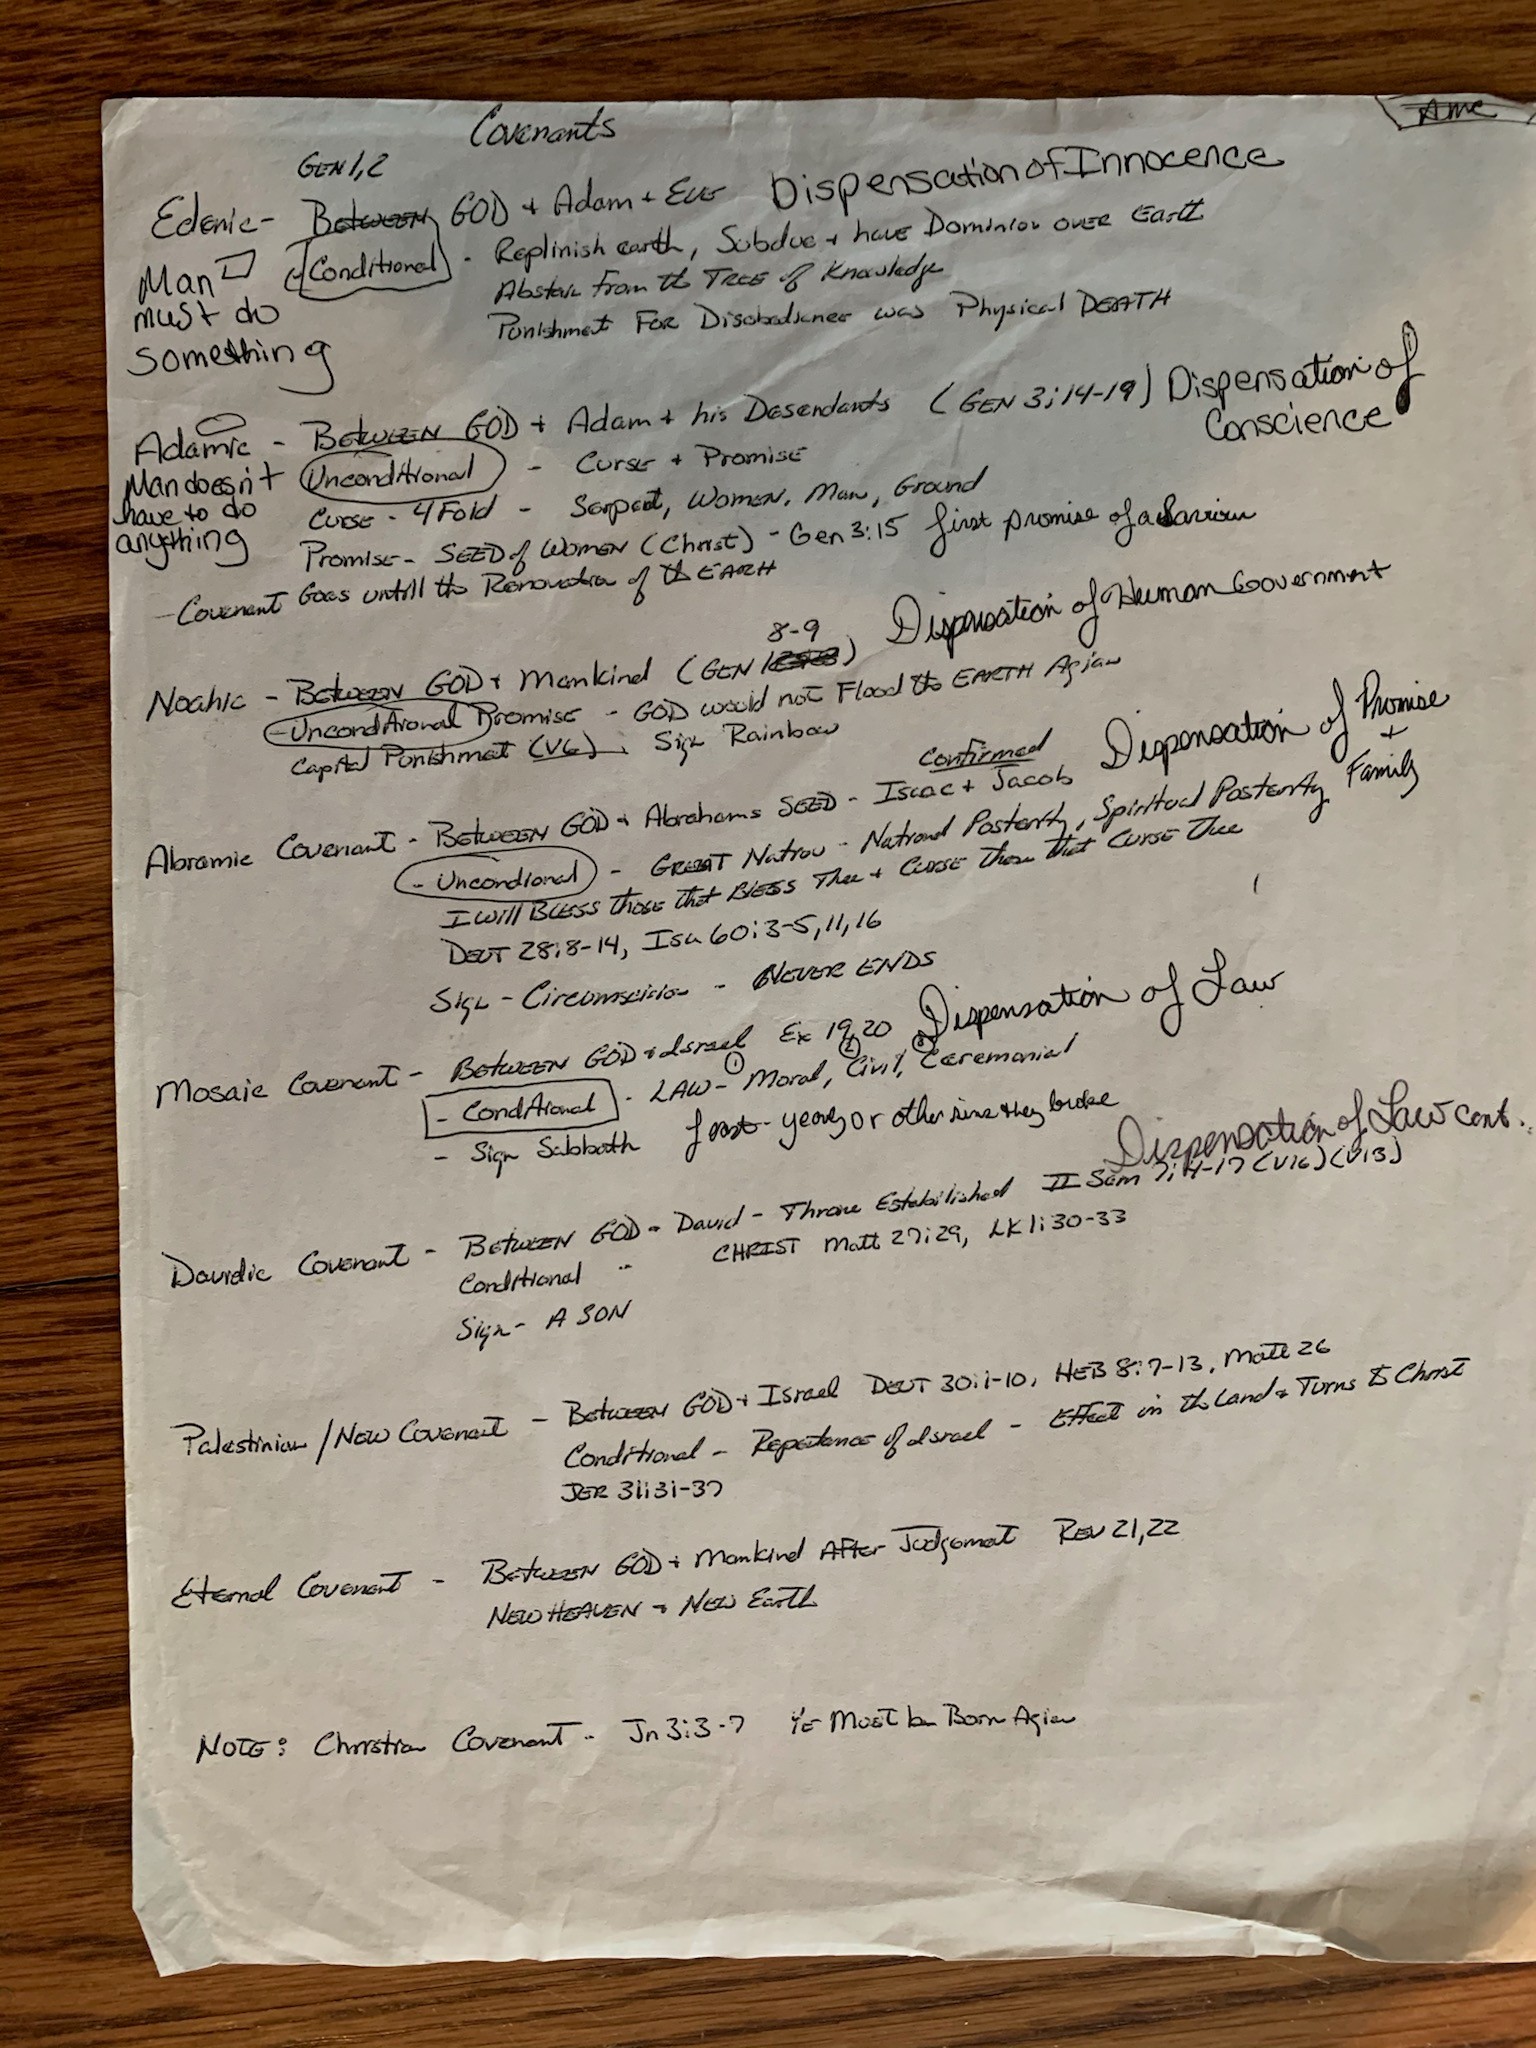 Covenants
AMC
GEN 1,2
Edenic - BETWEEN GOD + Adam + EVE Dispensation of Innocence
Man must do something
Conditional - Replinish earth, Subdue + have Dominion over Earth
Abstain from th TREE of Knowledge
Punishment FOR Disobedience was Physical DEATH
Adamic - BETWEEN GOD + Adam + his Desendants (GEN 3:14-19) Dispensation of Conscience
Man doesn't have to do anything
Unconditional - Curse + Promise
Curse - 4 Fold - Serpent, Women, Man, Ground
Promise - SEED of Women (Christ) - Gen 3:15 first promise of a Saviour
- Covenant Goes untill th Renovation of th EARTH
8-9
Noahic - BETWEEN GOD + Mankind (GEN ) Dispensation of Human Government
- Unconditional Promise - GOD would not Flood th EARTH Agian
Capital Punishment (V6) Sign Rainbow
confirmed
Abramic Covenant - BETWEEN GOD + Abrahams SEED - Isaac + Jacob Dispensation of Promise + Family
- Uncondional - GREAT Nation - National Posterity, Spiritual Posterity
I will BLESS those that BLESS Thee + CURSE those that CURSE Thee
DEUT 28:8-14, Isa 60:3-5,11,16
Sign - Circumscision - NEVER ENDS
Mosaic Covenant - BETWEEN GOD + Israel Ex 19,20 Dispensation of Law
- Conditional - LAW - ① Moral, ② Civil, ③ Ceremonial
- Sign Sabbath years or other sins they broke
Dispensation of Law cont.
Davidic Covenant - BETWEEN GOD + David - Throne Established II Sam 7:4-17 (V16) (V13)
Conditional - CHRIST Matt 27:29, LK 1:30-33
Sign - A SON
Palestinian / NEW Covenant - BETWEEN GOD + Israel DEUT 30:1-10, HEB 8:7-13, Matt 26
Conditional - Repentance of Israel - Effect in th Land + Turns to Christ
JER 31:31-37
Eternal Covenant - BETWEEN GOD + Mankind After Judgement REV 21,22
NEW HEAVEN + NEW Earth
NOTE: Christian Covenant - Jn 3:3-7 YE Must be Born Agian